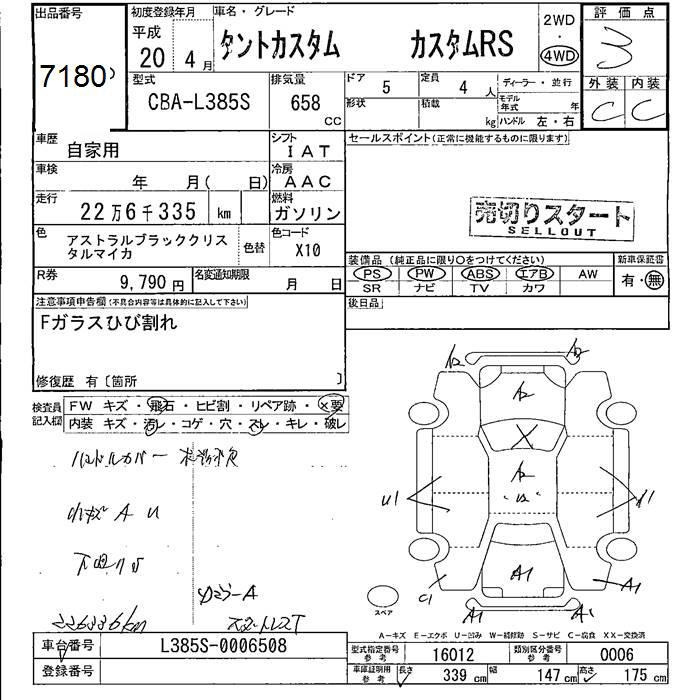 出品番号
7180
初度登録年月
平成
20年 4月
車名・グレード
タントカスタム カスタムRS
2WD
・
4WD
評価点
3
外装 内装
C C
型式
CBA-L385S
排気量
658
CC
ドア 5
定員 4 人
形状
積載 kg
ディーラー・並行
モデル年式 年
ハンドル 左・右
車歴
自家用
シフト
IAT
車検
年 月( 日)
冷房
AAC
走行
22万6千335 km
燃料
ガソリン
色
アストラルブラッククリス
タルマイカ
色替
色コード
X10
R券
9,790円
名変通知期限
月 日
セールスポイント(正常に機能するものに限ります)
売切りスタート
SELLOUT
装備品(純正品に限り○をつけてください)
PS PW ABS エアB AW
SR ナビ TV カワ
新車保証書
有・無
後日品
注意事項申告欄(不具合内容等は具体的に記入して下さい)
Fガラスひび割れ
修復歴 有〔箇所 〕
検査員
記入欄
FW キズ・飛石・ヒビ割・リペア跡・×要
内装 キズ・汚レ・コゲ・穴・スレ・キレ・破レ
ハンドルカバー
小キズ A U
226336km
A2 A2
A2
X
A2
U1
A1
C1 A1
A1 A1
スペア
A―キズ E―エクボ U―凹み W―補修跡 S―サビ C―腐食 XX―交換済
車台番号
L385S-0006508
登録番号
型式指定番号
参考
16012
類別区分番号
参考
0006
車庫証明用
参考
長さ 339 cm 幅 147 cm 高さ 175 cm